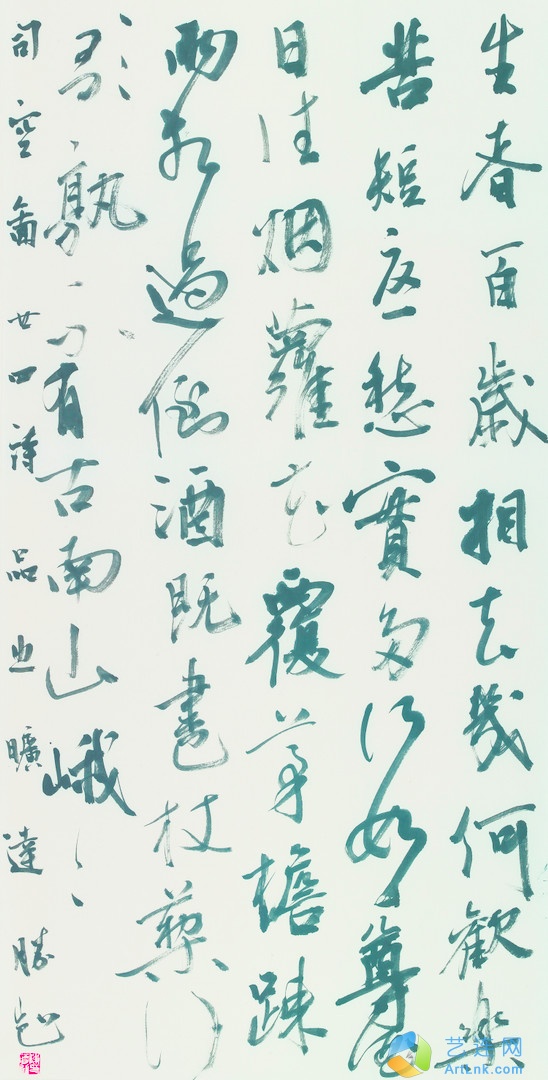 生者百歲相去幾何歡樂
苦短憂愁實多何如尊酒
日往烟蘿花覆茅檐踈
雨相過倒酒既盡杖藜行
歌孰不有古南山峨々
司空啚廿四詩品之曠達 勝
Artlnk.com